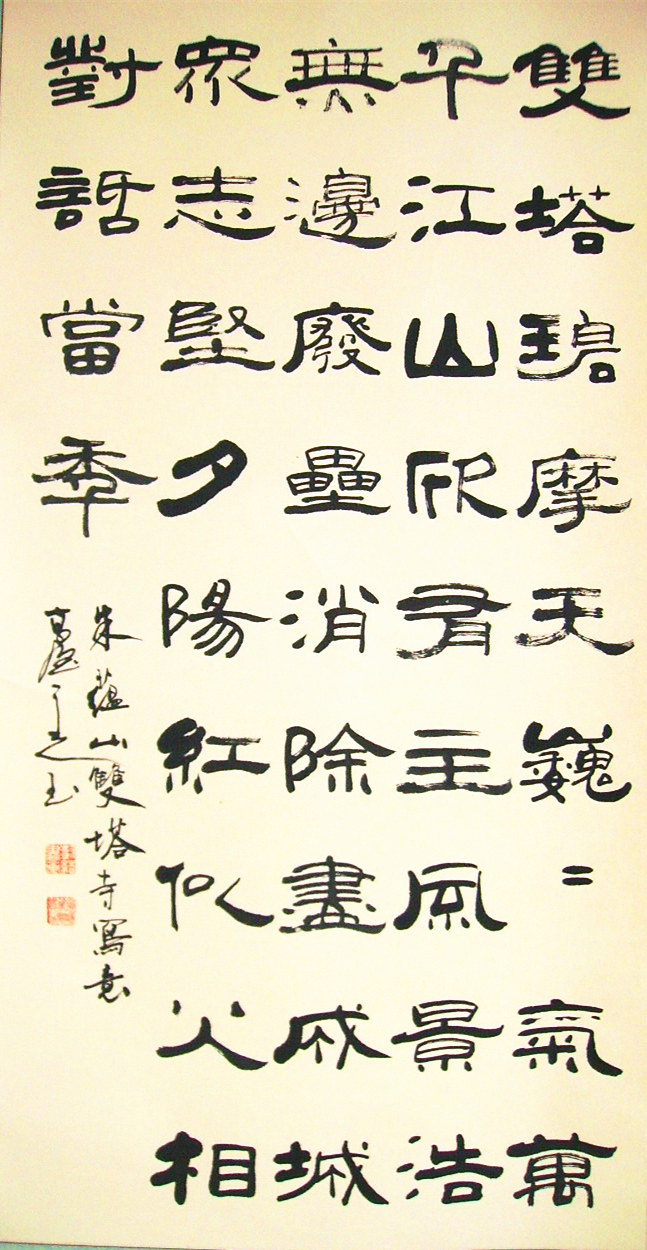 雙塔碧摩天巍〻氣萬
千江山欣有主風景浩
無邊廢壘消除盡成城
眾志堅夕陽紅似火相
對話當秊
朱蘊山雙塔寺寫意
廬之玉